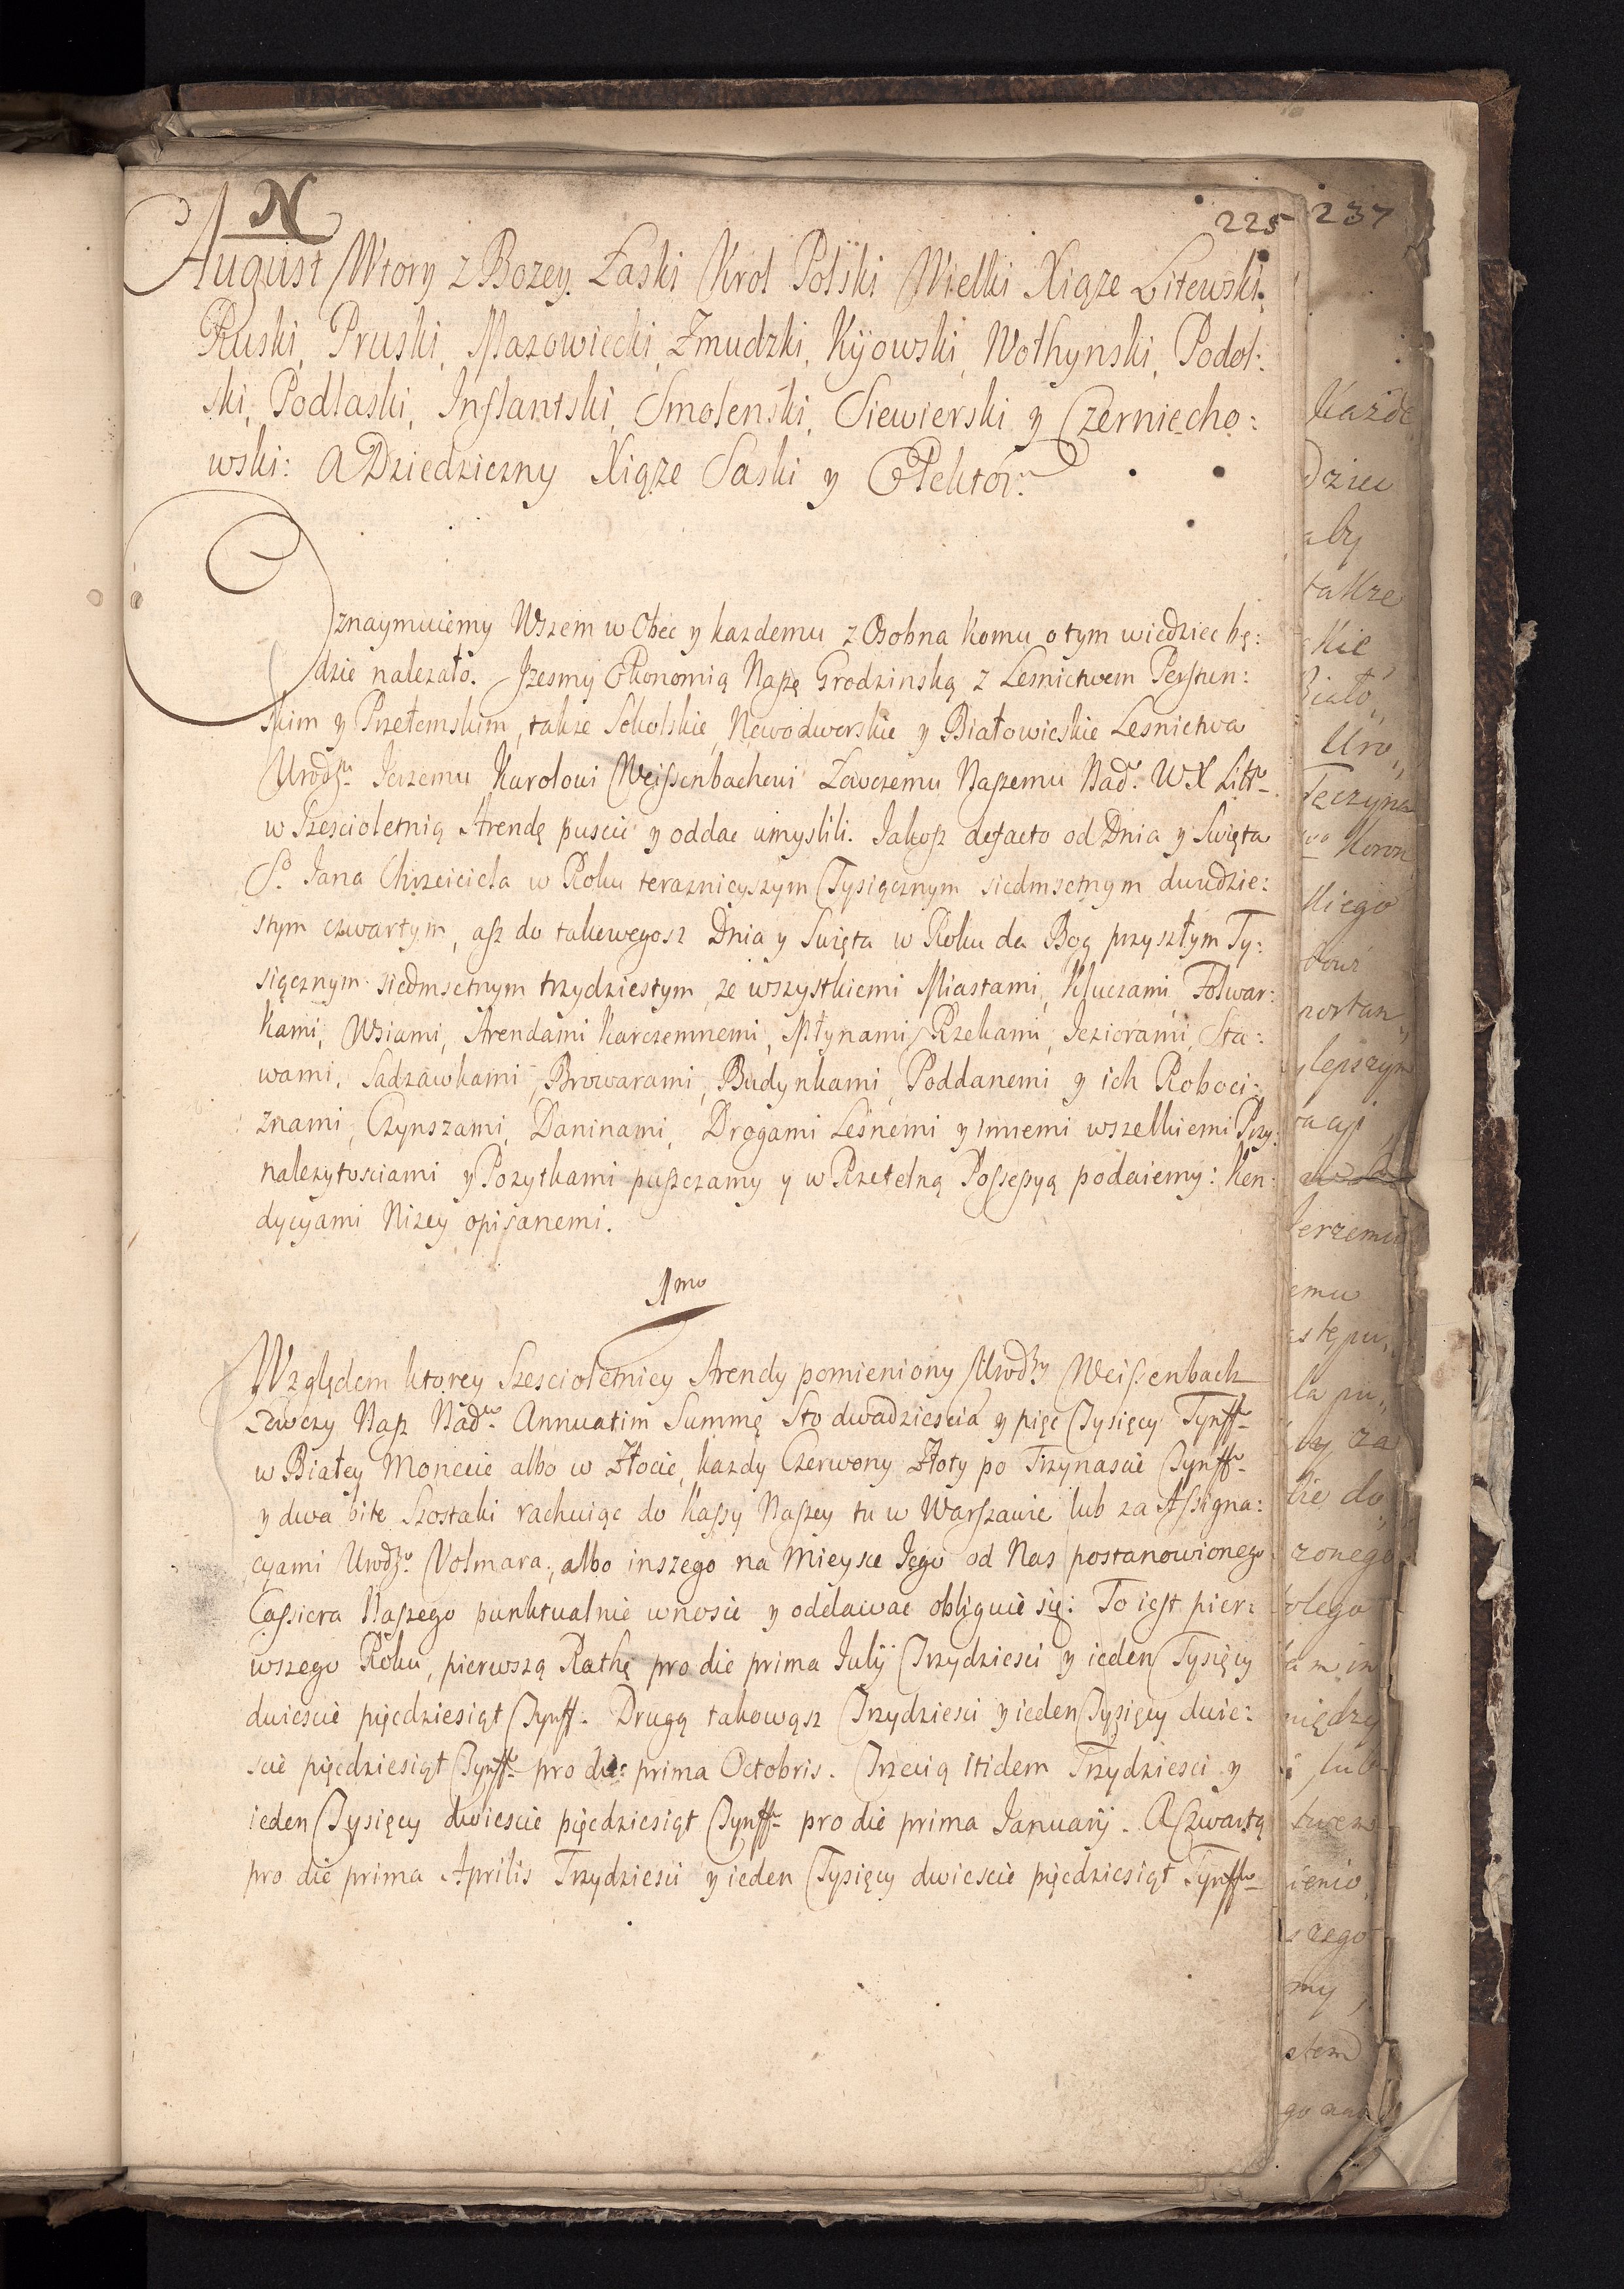 N
225 237
August Wtory z Bozey Łaski Krol Polski Wielki Xiąze Litewski,
Ruski, Pruski, Mazowiecki, Zmudzki, Kÿowski, Wołhynski, Podol:
ski, Podlaski, Inflantski, Smolenski, Siewierski y Czerniecho:
wski: A Dziedziczny Xiąze Saski y Elektór.
Oznaymuiemy Wszem w Obec y kazdemu z Osobna komu o tym wiedziec bę:
dzie nalezało. Izesmy Ekonomią Naszę Grodzinską z Lesnictwem Perstun:
skim y Przełomskim, takze Sokolskie, Nowodworskie y Białowieskie Lesnictwa
Urodzu. Jerzemu Karolowi Weissenbachowi Łowczemu Naszemu Nadr. W X Littr
w Szescioletnią Arendę puscić y oddac umyslili. Jakosz defacto od Dnia y Swięta
So. Jana Chrzciciela w Roku teraznieyszym Tysiącznym siedmsetnym dwudzie:
stym czwartym, asz do takowegosz Dnia y Swięta w Roku da Bog przyszłym Ty:
siącznym siedmsetnym trzydziestym, ze wszystkiemi Miastami, Kluczami, Folwar:
kami, Wsiami, Arendami Karczemnemi, Młynami, Rzekami, Jeziorami, Sta:
wami, Sadzawkami, Browarami, Budynkami, Poddanemi y ich Roboci:
znami, Czynszami, Daninami, Drogami Lesnemi y innemi wszelkiemi Przy:
nalezytosciami y Pozytkami puszczamy y w Rzetelną Possessyą podaiemy: Kon:
dycyami Nizey opisanemi.
1mo
Względem ktorey Szescioletniey Arendy pomieniony Urodzy Weissenbach
Łowczy Nasz Nadr. Annuatim Summę Sto dwadziescia y pięc Tysięcy Tynff
w Białey Monecie albo w Złocie, kazdy Czerwony Złoty po Trzynascie Tynff
y dwa bite Szostaki rachuiąc do Kassy Naszey tu w Warszawie lub za Assigna:
cyami Urodzo. Volmara, albo inszego na Mieysce Jego od Nas postanowionego
Cassiera Naszego punktualnie wnosic y oddawac obliguie się: To iest pier:
wszego Roku, pierwszą Rathę pro die prima Julÿ Trzydziesci y ieden Tysięcy
dwiescie pięcdziesiąt Tynff. Drugą takowąsz Trzydziesci y ieden Tysięcy dwie:
scie pięcdziesiąt Tynff pro die prima Octobris. Trzecią itidem Trzydziesci y
ieden Tysięcy dwiescie pięcdziesiąt Tynff pro die prima Januarÿ. A Czwartą
pro die prima Aprilis Trzydziesci y ieden Tysięcy dwiescie pięcdziesiąt Tynffw